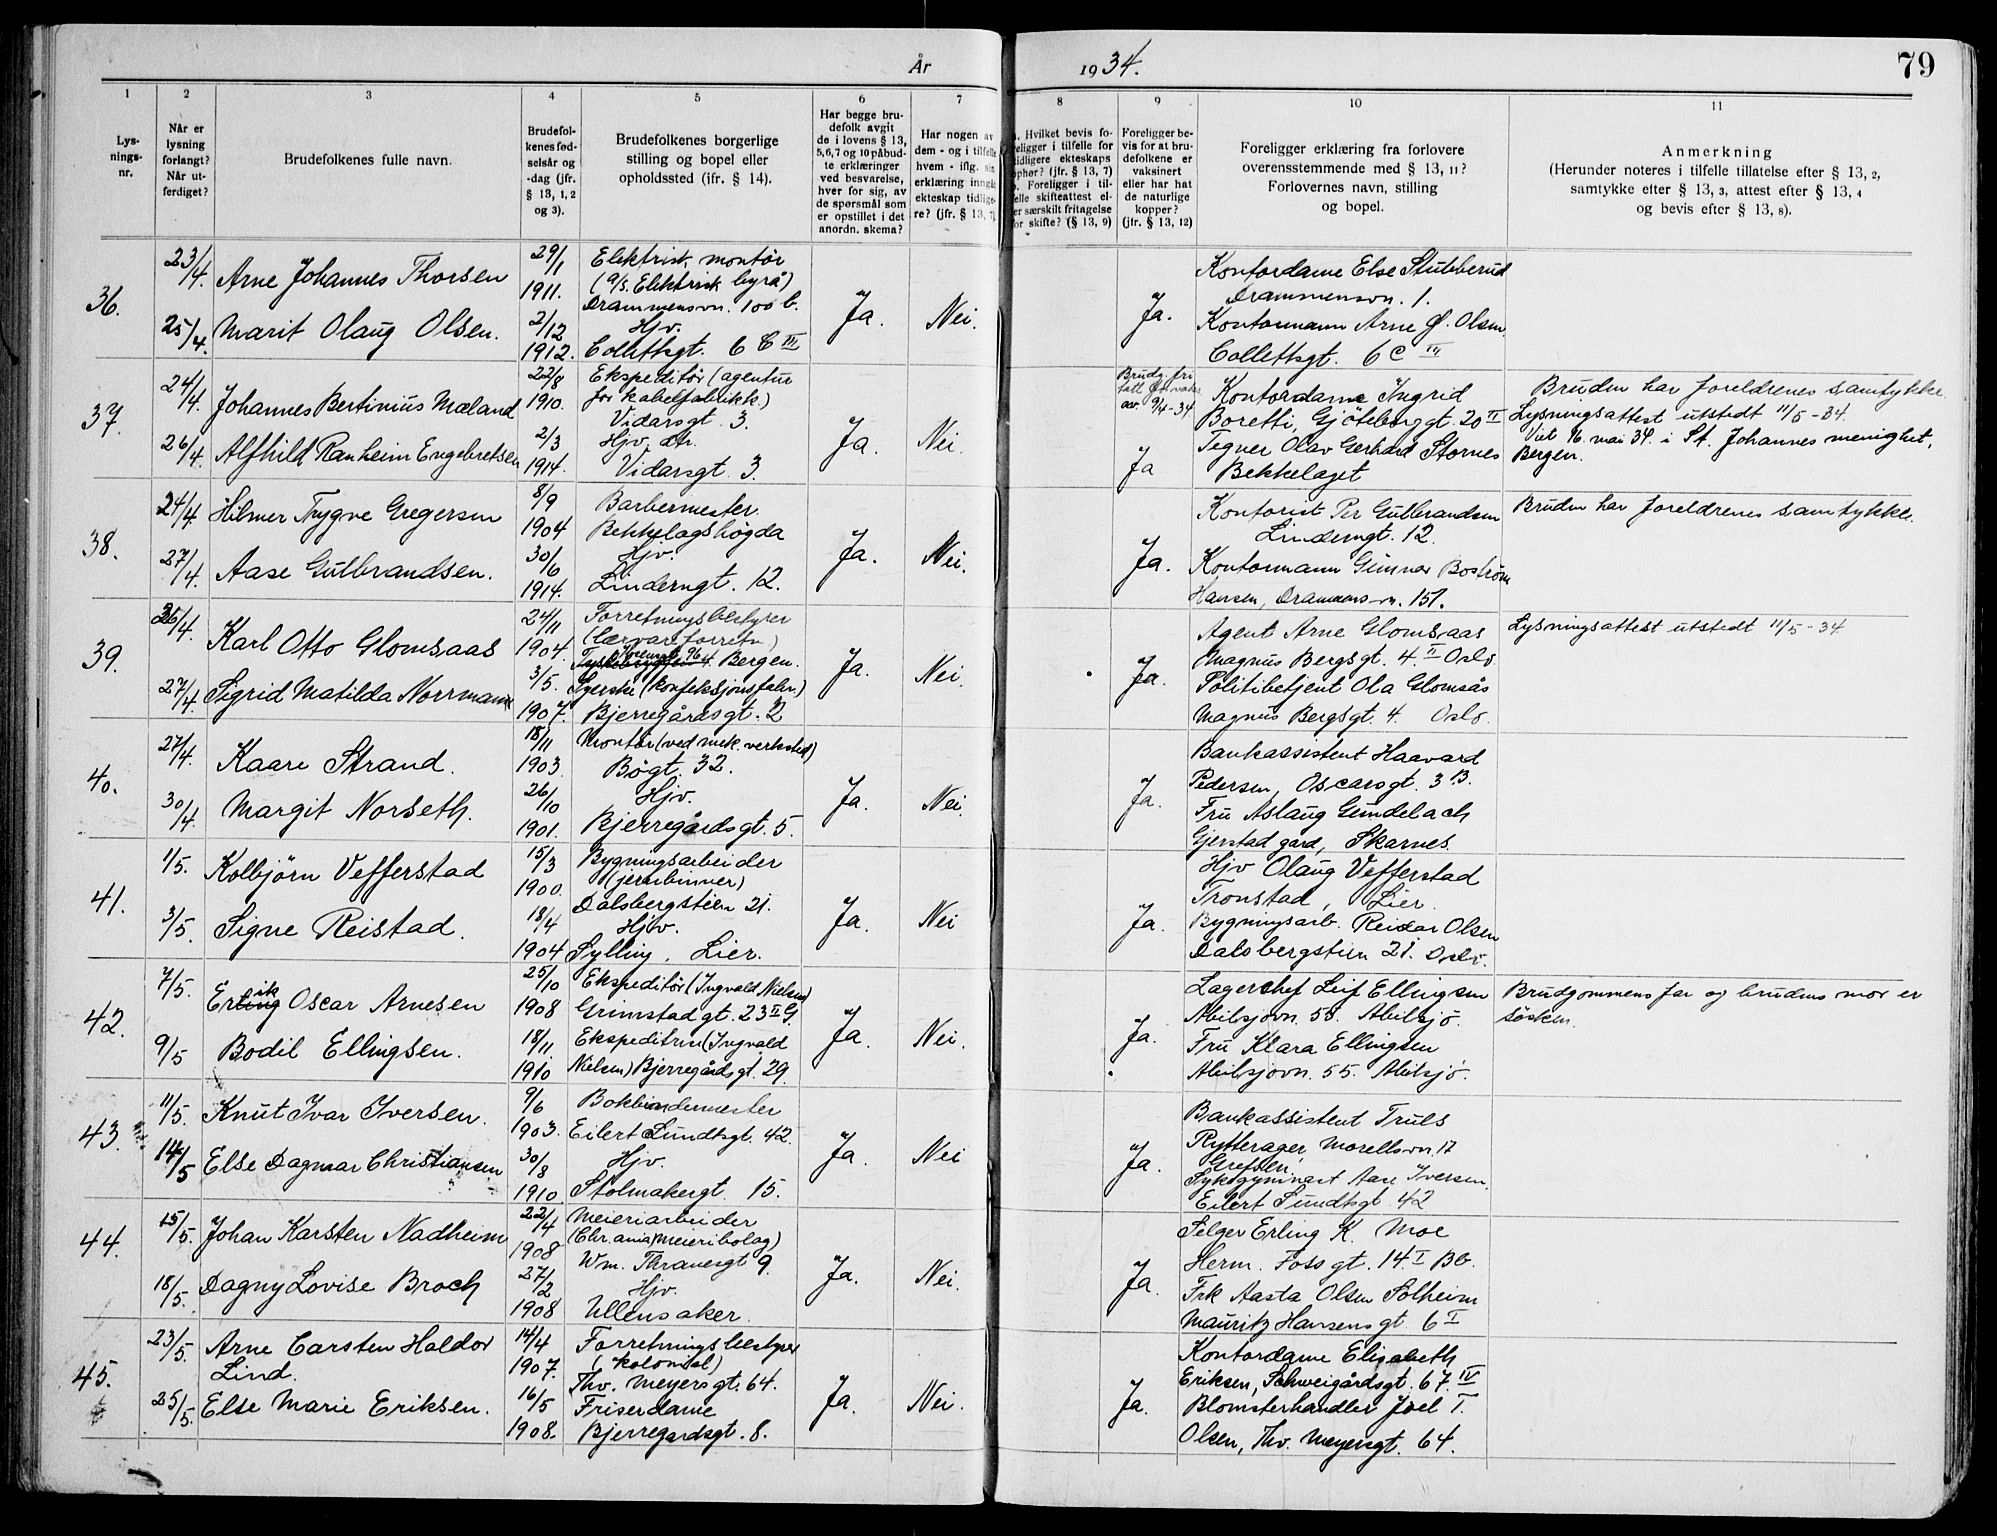 År 1934.
79
1
2
3
4
5
6
7
8
9
10
11
Lys-
nings-
nr.
Når er
lysning
forlangt?
Når ut-
ferdiget?
Brudefolkenes fulle navn.
Brudefol-
kenes fød-
selsår og
-dag (jfr.
§ 13, 1, 2
og 3).
Brudefolkenes borgerlige
stilling og bopel eller
opholdssted (jfr. § 14).
Har begge bru-
defolk avgit
de i lovens § 13,
5, 6, 7 og 10 påbud-
te erklæringer
ved besvarelse,
hver for sig, av
de spørsmål som
er opstillet i det
anordn. skema?
Har nogen av
dem - og i tilfelle
hvem - iflg. sin
erklæring inngått
ekteskap tidlige-
re? (jfr. § 13, 7)
. Hvilket bevis fo-
religger i tilfelle for
tidligere ekteskaps
ophør? (jfr. § 13, 7)
. Foreligger i til-
felle skifteattest el-
er særskilt fritagelse
for skifte? (§ 13, 9)
Foreligger be-
vis for at bru-
defolkene er
vaksinert
eller har hat
de naturlige
kopper?
(jfr. § 13, 12)
Foreligger erklæring fra forlovere
overensstemmende med § 13, 11?
Forlovernes navn, stilling
og bopel.
Anmerkning
(Herunder noteres i tilfelle tillatelse efter § 13, 2,
samtykke efter § 13, 3, attest efter § 13, 4
og bevis efter § 13, 8).
36.
23/4.
25/4.
Arne Johannes Thorsen
Marit Olaug Olsen.
29/1
1911.
2/12
1912.
Elektrisk montör
(a/s. Elektrisk byrå)
Drammensvn. 100 b.
Hjv.
Collettsgt. 6 C III
Ja.
Nei.
Ja.
Kontordame Else Stubberud
Drammensvn. 1.
Kontormann Arne Ø. Olsen,
Collettsgt. 6 C III
37.
24/4.
26/4.
Johannes Bertinius Mæland
Alfhild Ranheim Engebretsen
22/8
1910.
2/3
1914.
Ekspeditör (agentur
for kabelfabrikk.)
Vidarsgt. 3.
Hjv. dtr.
Vidarsgt 3.
Ja.
Nei.
Brudg. fri
9/4-34
Ja
Kontordame Ingrid
Boretti, Gjöteborggt. 20 II
Tegner Olav Gerhard Stornes
Bekkelaget
Bruden har foreldrenes samtykke.
Lysningsattest utstedt 11/5-34.
Viet 16. mai 34. i St. Johannes menighet,
Bergen.
38.
24/4.
27/4.
Hilmer Trygve Gregersen
Aase Gulbrandsen.
8/9
1904
30/6
1914.
Barbermester.
Bekkelagshögda
Hjv.
Linderngt. 12.
Ja.
Nei.
Ja.
Kontorist Per Gulbrandsen
Linderngt. 12.
Kontormann Gunnar Boström
Hansen, Drammensvn. 151.
Bruden har foreldrenes samtykke.
39.
26/4.
27/4.
Karl Otto Glomsaas
Sigrid Matilda Norrmann
24/11
1904.
3/5.
1907.
Forretningsbestyrer
(Lærvareforretn.)
Tyskebryggen 4. Bergen.
Syerske (konfeksjonsfabr.)
Bjerregårdsgt. 2
Ja.
Nei.
Ja.
Agent Arne Glomsaas
Magnus Bergsgt. 4. II Oslo.
Politibetjent Ola Glomsås
Magnus Bergsgt. 4. Oslo.
Lysningsattest utstedt 11/5-34.
40.
27/4.
30/4.
Kaare Strand.
Margit Norseth.
18/11
1903.
26/10
1901.
Montör (ved mek. verksted)
Bögt. 32.
Hjv.
Bjerregårdsgt. 5.
Ja.
Nei.
Ja.
Bankassistent Haavard
Pedersen, Oscarsgt. 3 B.
Fru Aslaug Gundelach
Gjerstad gård, Skarnes.
41.
1/5.
3/5.
Kolbjörn Vefferstad
Signe Reistad.
15/3
1900.
18/4
1904
Bygningsarbeider
(jernbinner)
Dalsbergstien 21.
Hjv.
Sylling, Lier.
Ja.
Nei
Ja.
Hjv Olaug Vefferstad
Tronstad, Lier.
Bygningsarb. Reidar Olsen
Dalsbergstien 21. Oslo.
42.
7/5.
9/5
Erling ik Oscar Arnesen
Bodil Ellingsen.
25/10
1908
18/11
1910
Ekspeditör (Ingvald Nielsen)
Grimstadgt. 23 II G.
Ekspeditrise (Ingvald
Nielsen) Bjerregårdsgt. 29.
Ja.
Nei.
Ja.
Lagerchef Leif Ellingsen
Abilsjövn. 55. Abilsjö.
Fru Klara Ellingsen
Abilsjövn. 55. Abilsjö.
Brudgommens far og brudens mor er
søsken.
43.
11/5.
14/5
Knut Ivar Iversen.
Else Dagmar Christiansen
9/6
1903.
30/8
1910.
Bokbindermester
Eilert Sundtsgt. 42.
Hjv.
Stolmakergt. 15.
Ja.
Nei
Ja.
Bankassistent Truls
Rytterager, Morellsvn. 17
Grefsen.
Sykegymnast Aase Iversen.
Eilert Sundtsgt 42
44.
15/5.
18/5.
Johan Karsten Nadheim
Dagny Lovise Broch
22/4
1908
27/2
1908
Meieriarbeider
(Chr.ania Meieribolag)
Wm. Thranesgt 9.
Hjv.
Ullensaker.
Ja.
Nei.
Ja.
Selger Erling K. Moe
Herm. Foss gt. 14. I Bb.
Frk Aasta Olsen Solheim
Mauritz Hansens gt. 6 I
45.
23/5.
25/5.
Arne Carsten Haldor
Lind.
Else Marie Eriksen.
14/4
1907.
16/5
1908.
Forretningsbestyrer
(kolonial)
Thv. Meyersgt. 64.
Friserdame
Bjerregårdsgt. 8.
Ja.
Nei.
Ja.
Kontordame Elisabeth
Eriksen, Schweigårdsgt. 67. IV
Blomsterhandler Joel T.
Olsen, Thv. Meyersgt. 64.